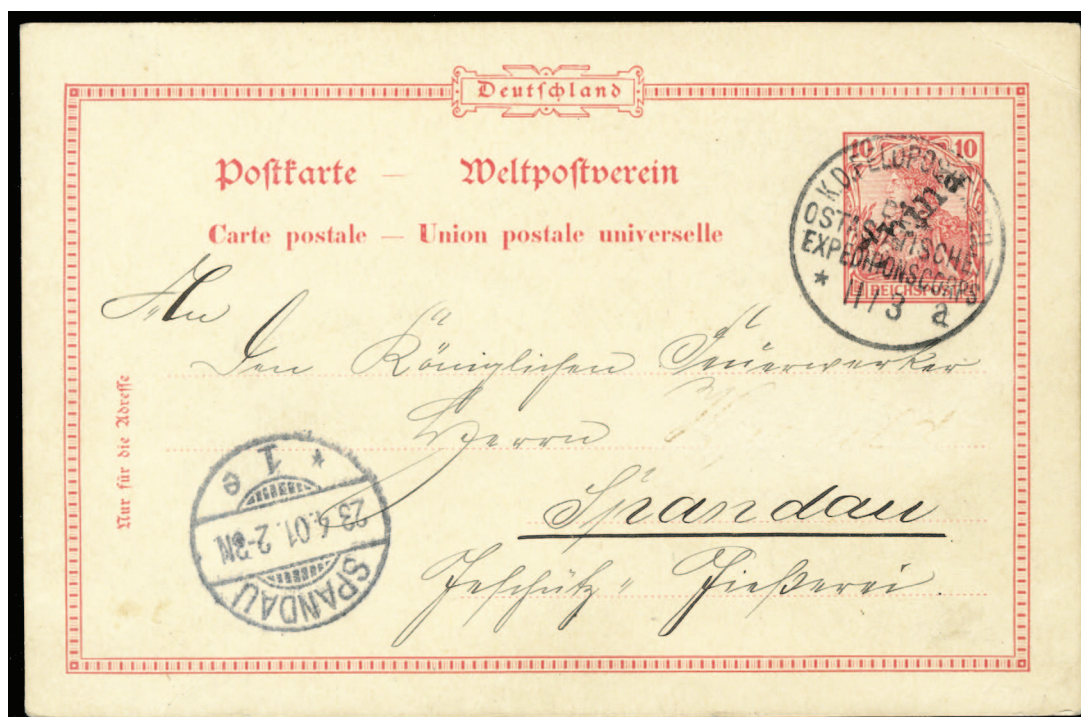 Deutschland
Postkarte — Weltpostverein
Carte postale — Union postale universelle
10 10
China
REICHSPOST
K.D. FELDPOST
OSTASIATISCHE
EXPEDITIONSCORPS
* 11/3 a
An
Den Königlichen Feuerwerker
Herrn
Spandau
Geschütz-Gießerei.
Nur für die Adresse
SPANDAU
23.4.01. 2-3N
* 1 e